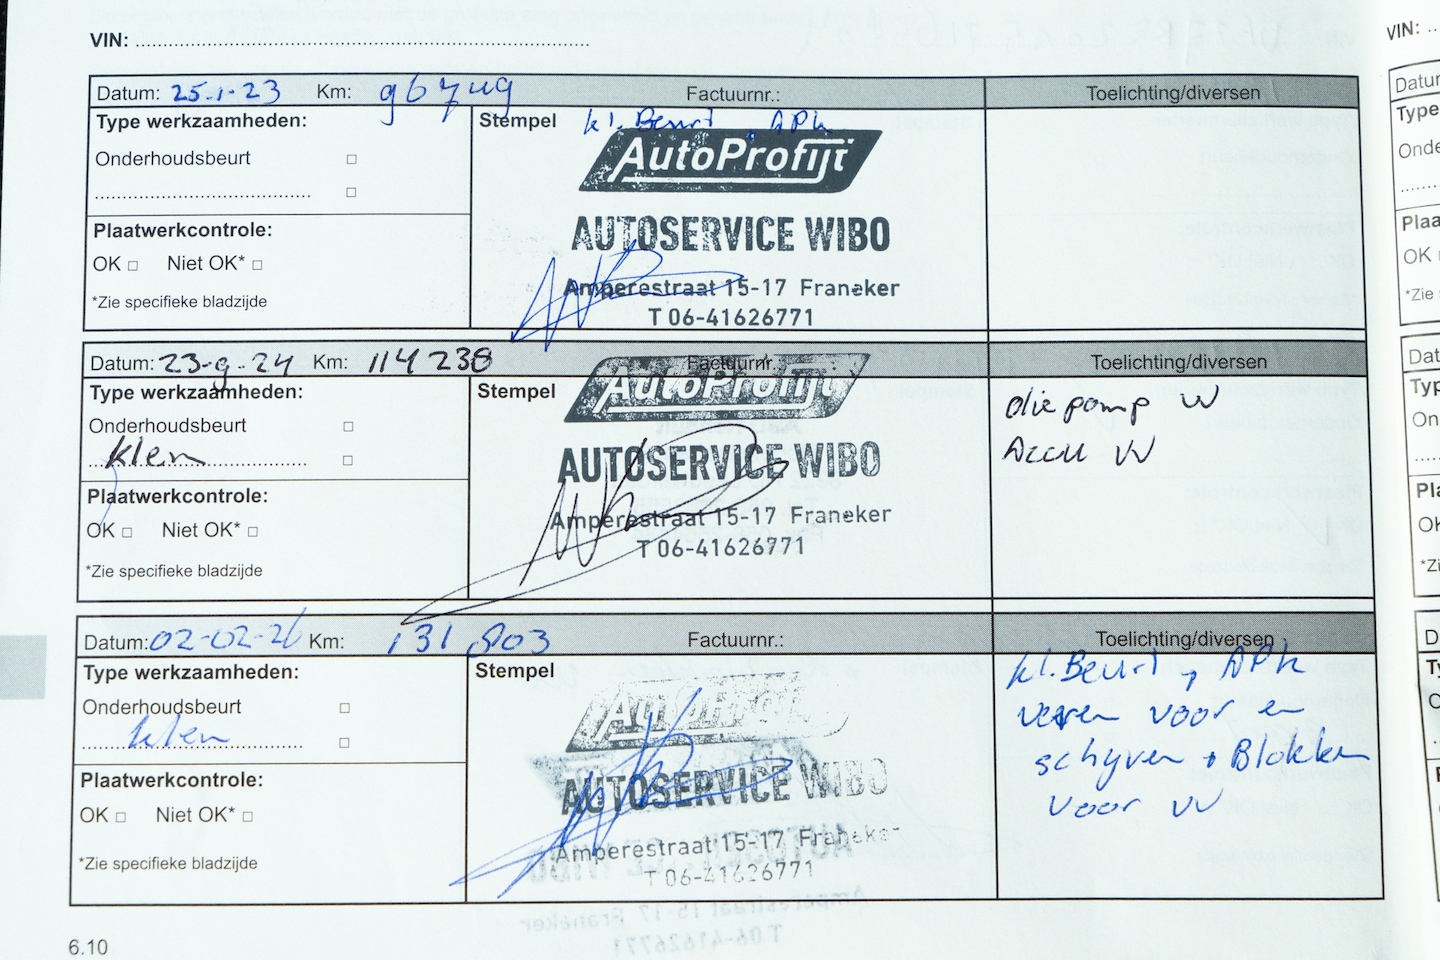 VIN:
Datum: 25-1-23 Km: 96749 Factuurnr.: Toelichting/diversen
Type werkzaamheden:
Stempel kl. Beurt, APk
Onderhoudsbeurt
AutoProfijt
AUTOSERVICE WIBO
Plaatwerkcontrole:
OK Niet OK*
Amperestraat 15-17 Franeker
*Zie specifieke bladzijde
T 06-41626771
Datum: 23-9-24 Km: 114238 Factuurnr. Toelichting/diversen
Type werkzaamheden:
Stempel
AutoProfijt
Onderhoudsbeurt
klein
AUTOSERVICE WIBO
Plaatwerkcontrole:
OK Niet OK*
Amperestraat 15-17 Franeker
*Zie specifieke bladzijde
T 06-41626771
oliepomp VV
Accu VV
Datum: 02-02-26 Km: 131,803 Factuurnr.: Toelichting/diversen
Type werkzaamheden:
Stempel
AutoProfijt
Onderhoudsbeurt
klein
AUTOSERVICE WIBO
Plaatwerkcontrole:
OK Niet OK*
Amperestraat 15-17 Franeker
*Zie specifieke bladzijde
T 06-41626771
kl. Beurt, APk
veren voor en
schijven + Blokken
voor VV
6.10
VIN: